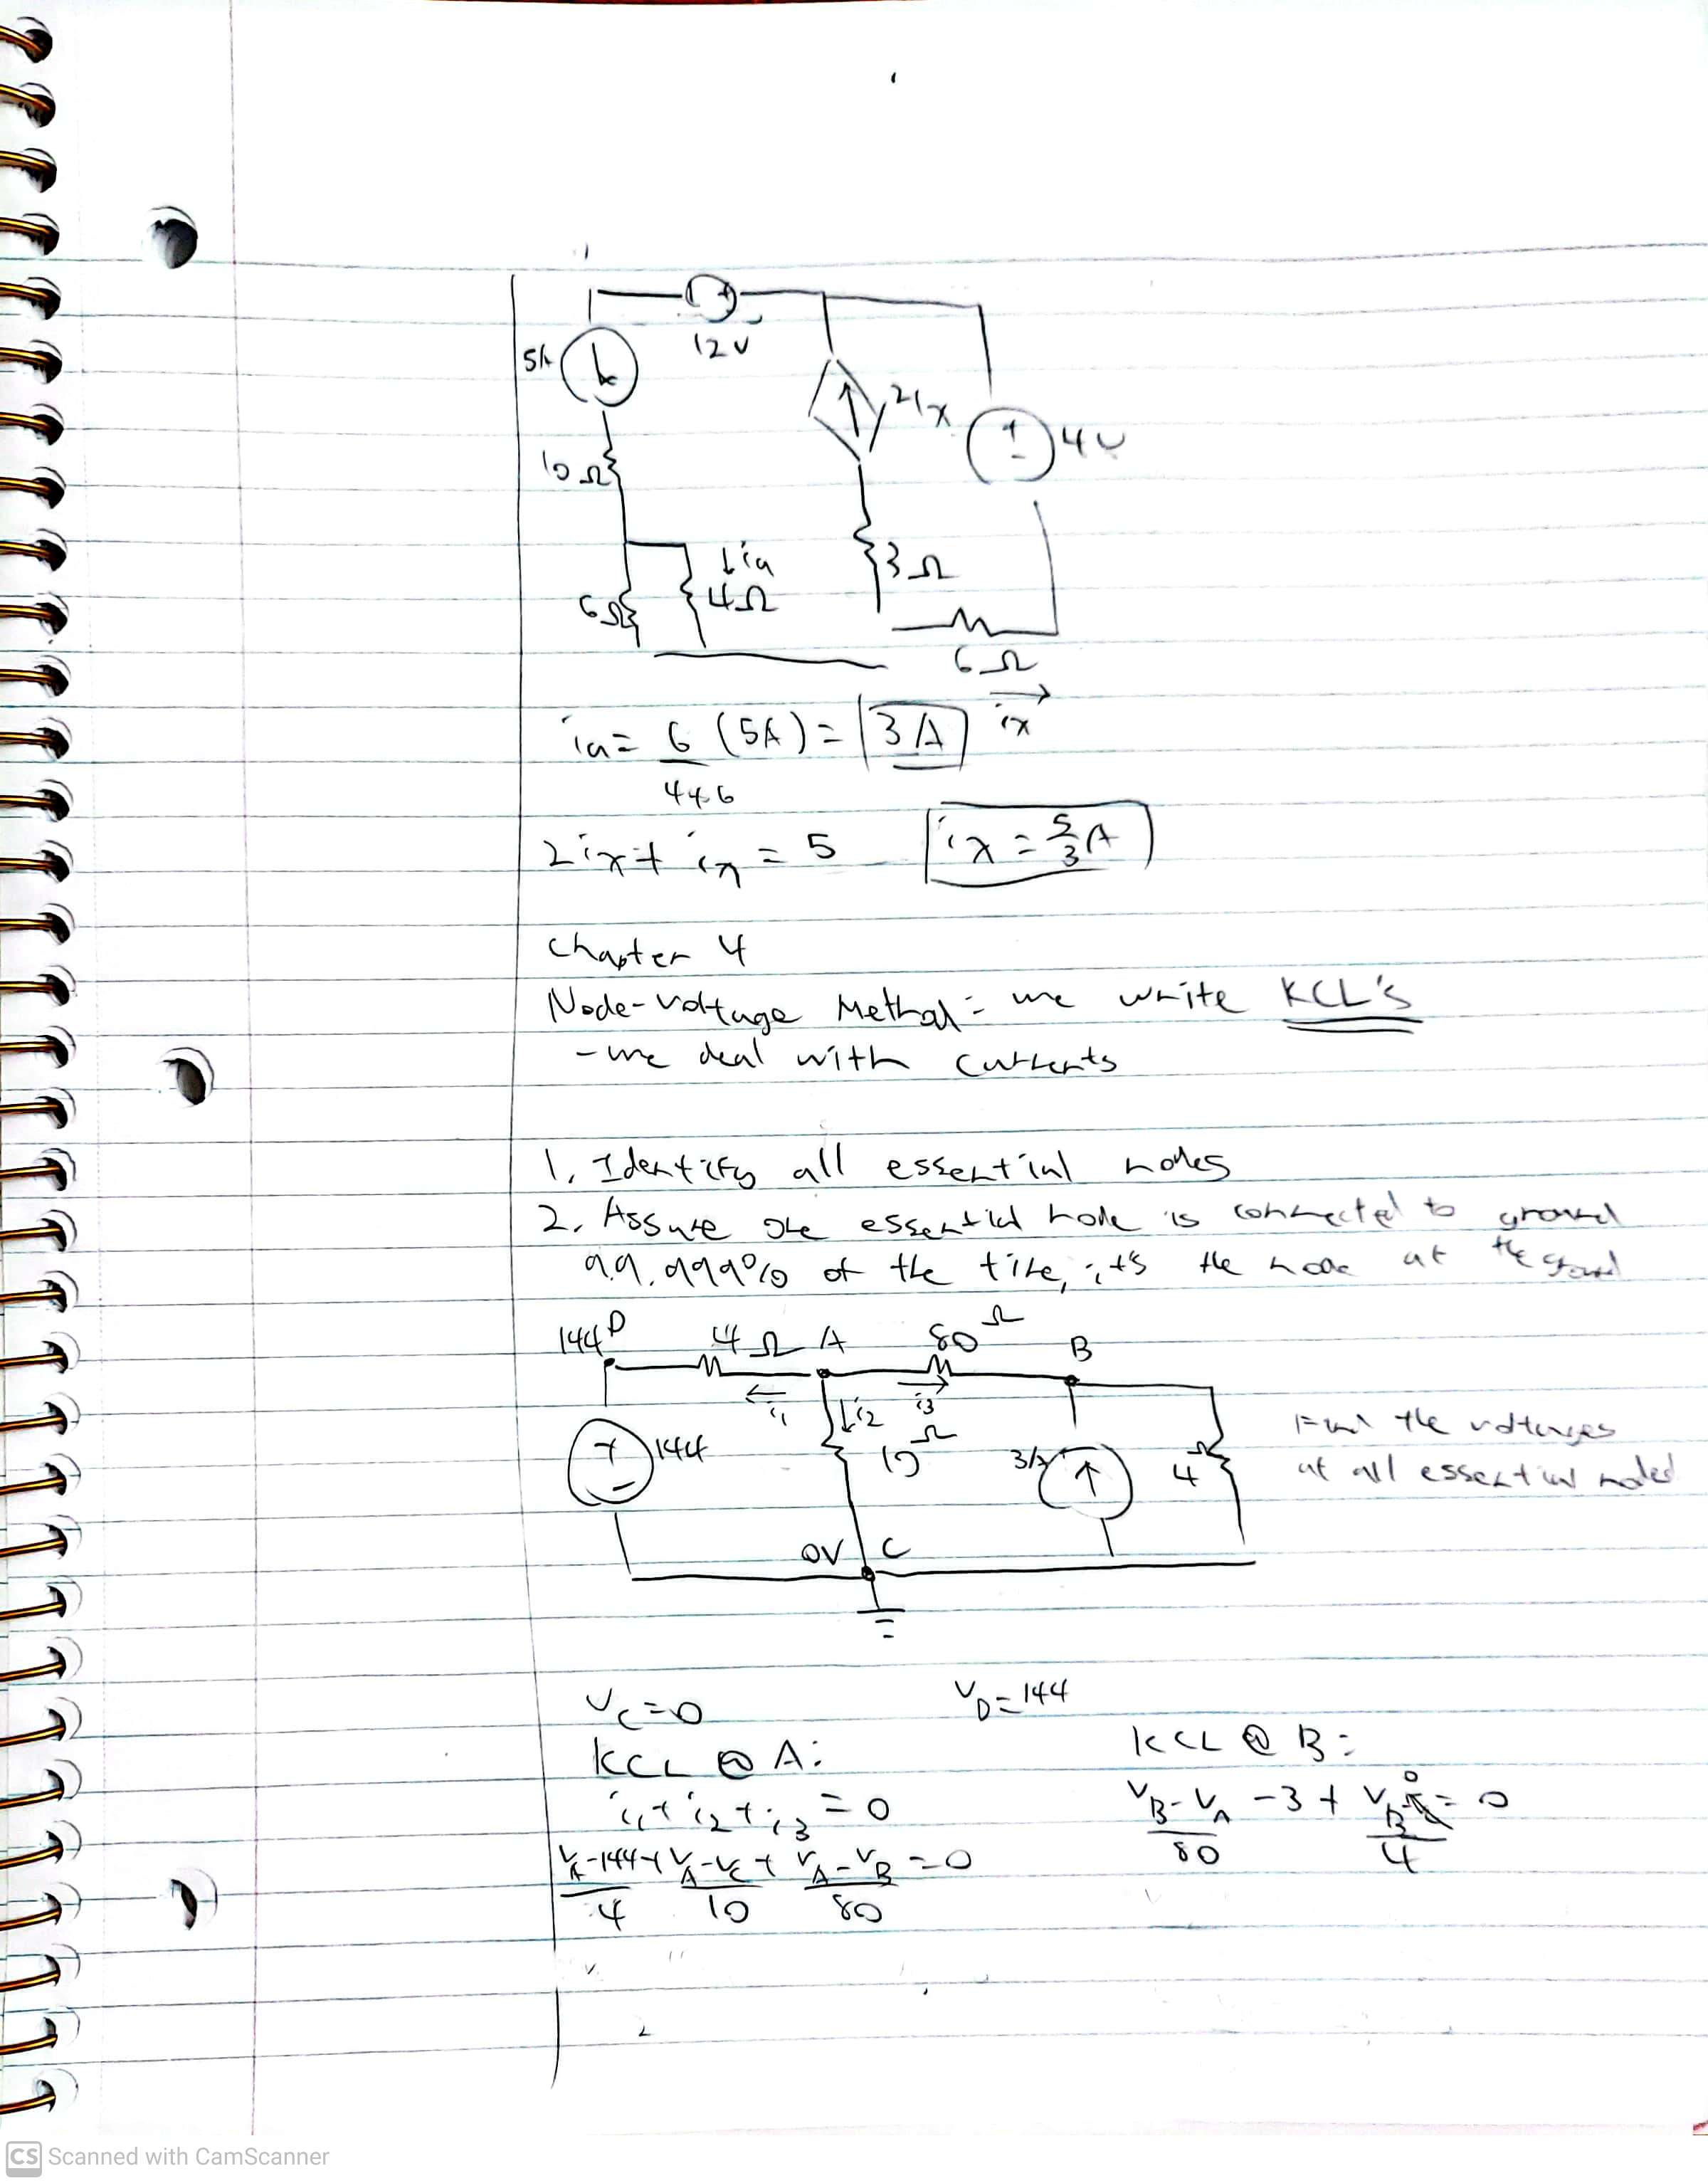 12V
5A
2ix
4V
10Ω
↓ia
3Ω
6Ω
4Ω
6Ω
ia = 6/(4+6) (5A) = 3A
ix
2ix + ix = 5 ix = 5/3 A
Chapter 4
Node-Voltage Method: we write KCL's
- we deal with currents
1. Identify all essential nodes
2. Assume one essential node is connected to ground
99.999% of the time, it's the node at the ground
144 D 4Ω A 80Ω B
i1 ↓i2 i3
144 10Ω 3A 4Ω
Find the voltages
at all essential nodes
0V C
VC = 0 VD = 144
KCL @ A: KCL @ B:
i1 + i2 + i3 = 0
(VB - VA)/80 - 3 + (VB - 0)/4 = 0
(VA - 144)/4 + (VA - VC)/10 + (VA - VB)/80 = 0
CS Scanned with CamScanner